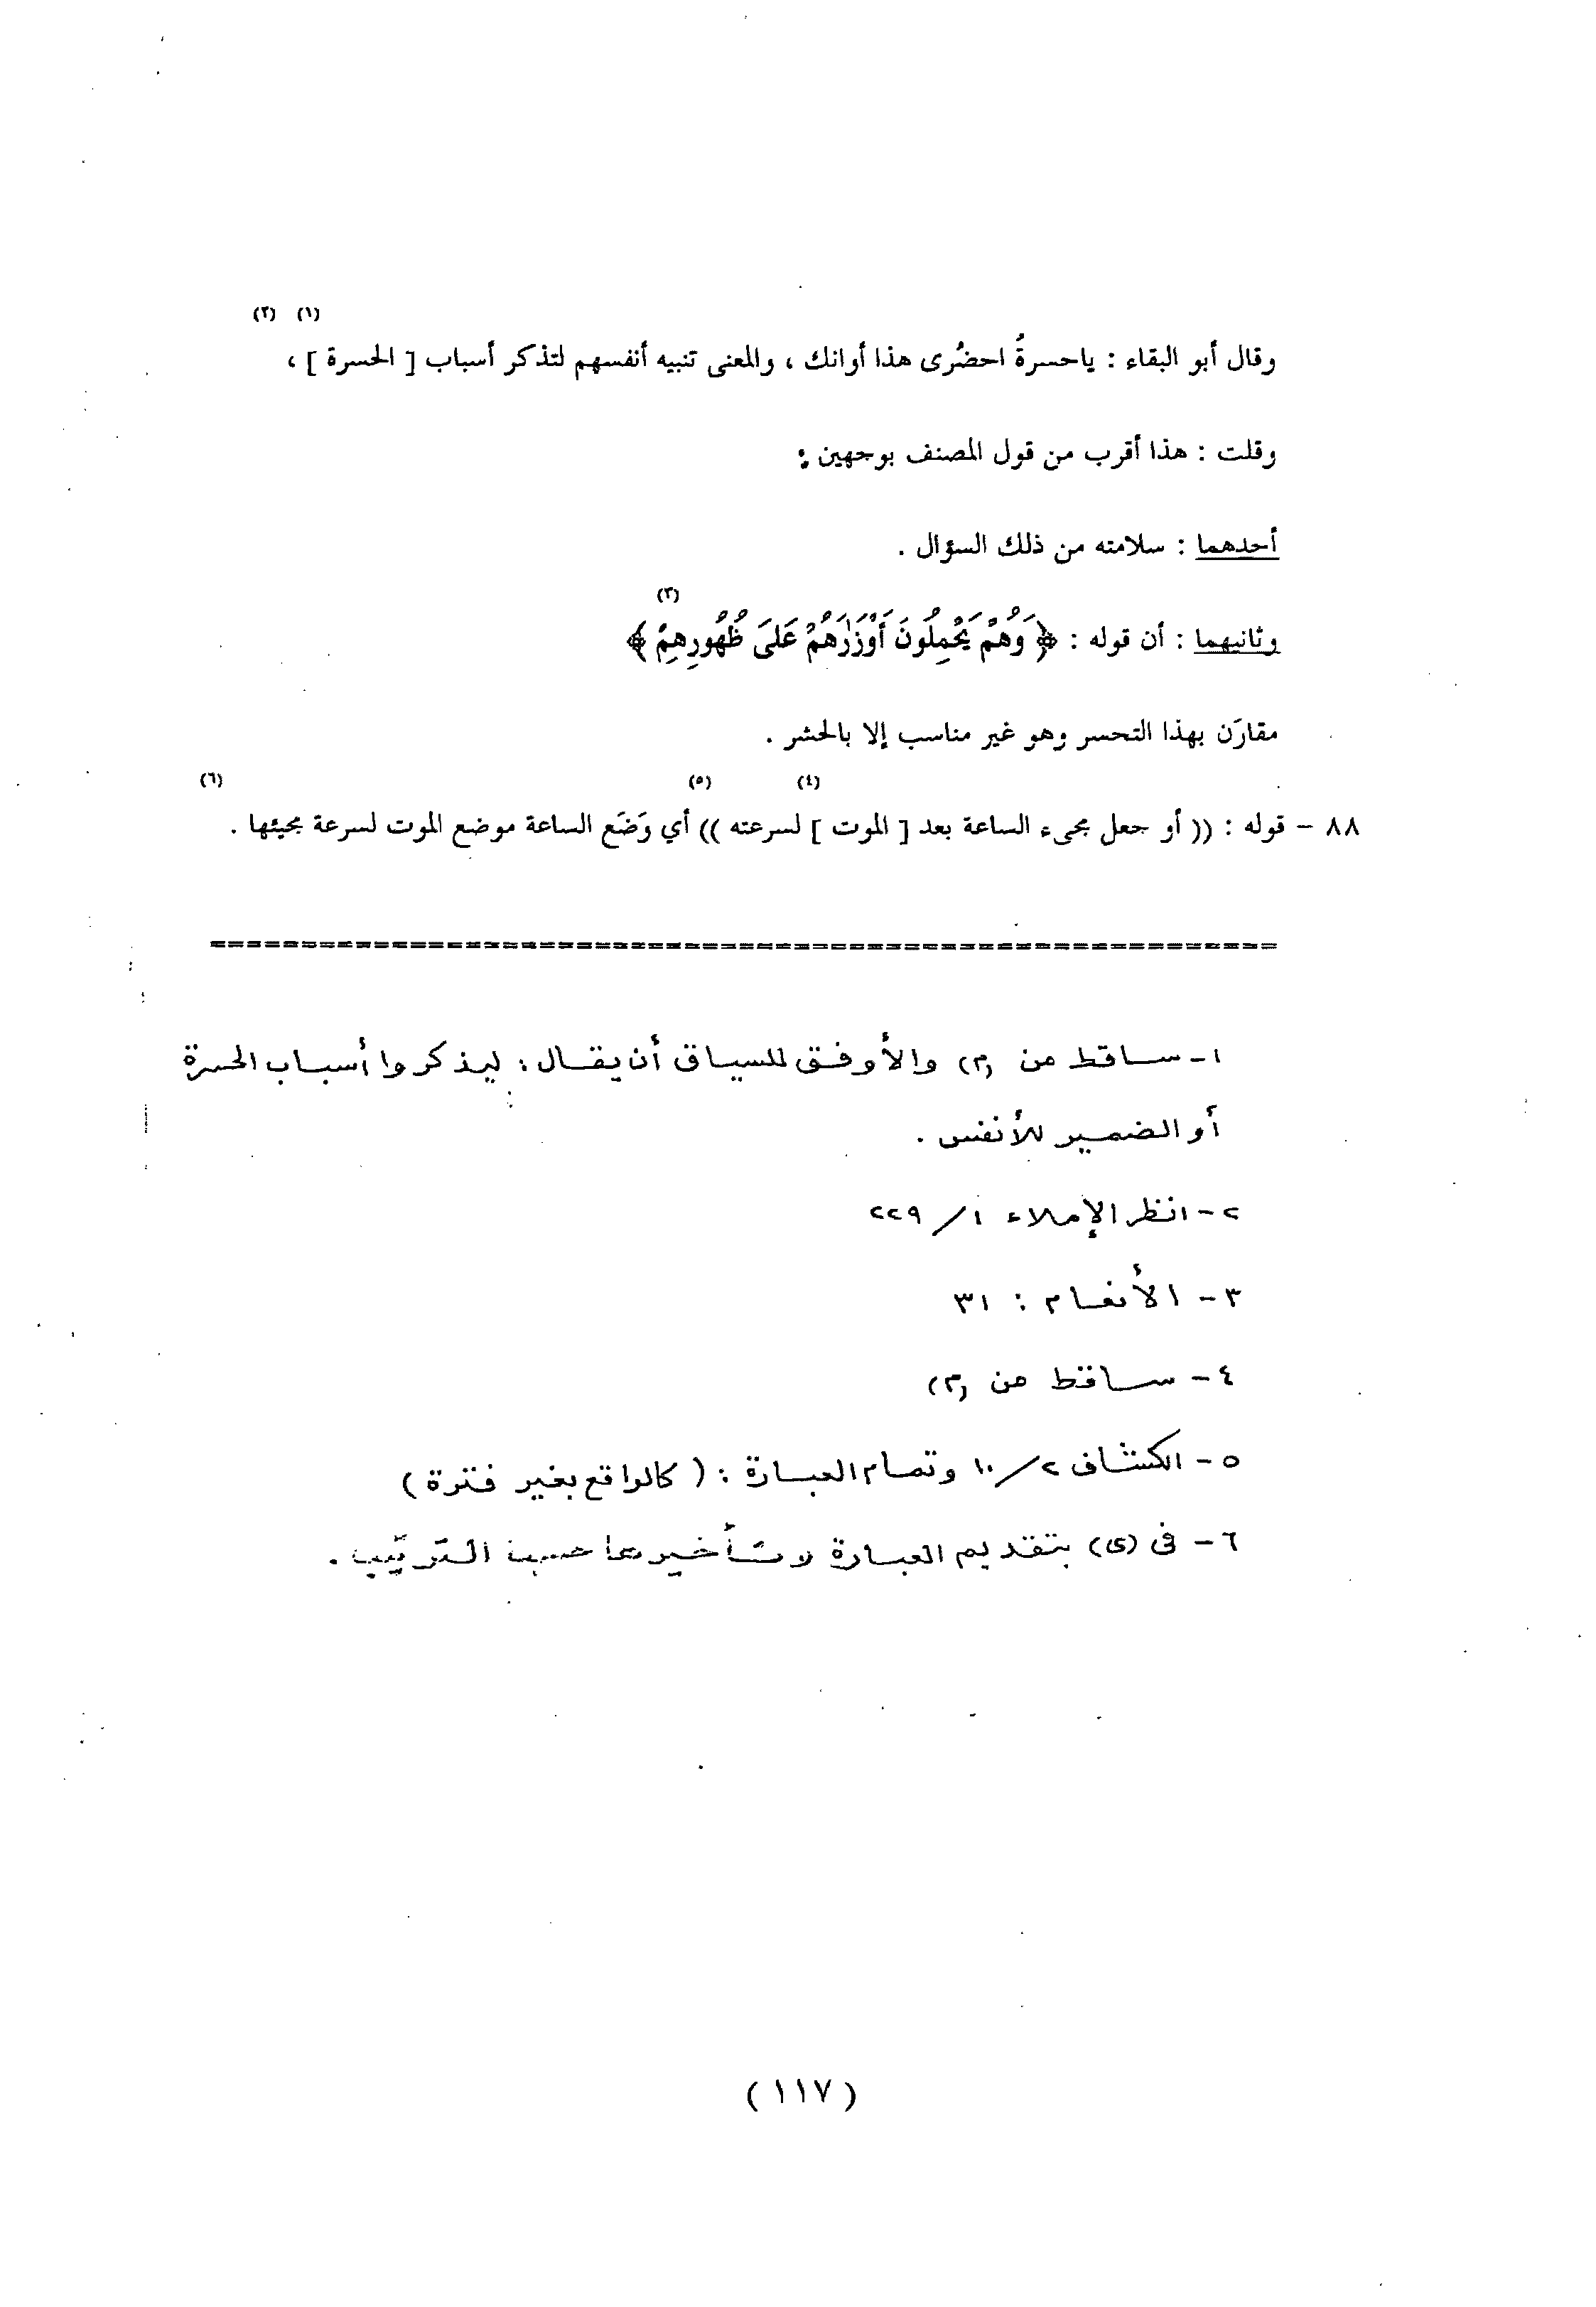 (١) (٢)
وقال أبو البقاء : ياحسرةُ احضُرى هذا أوانك ، والمعنى تنبيه أنفسهم لتذكر أسباب [ الحسرة ] ،
وقلت : هذا أقرب من قول المصنف بوجهين :
أحدهما : سلامته من ذلك السؤال .
(٣)
وثانيهما : أن قوله : ﴿ وَهُمْ يَحْمِلُونَ أَوْزَارَهُمْ عَلَىٰ ظُهُورِهِمْ ﴾
مقارَن بهذا التحسر وهو غير مناسب إلا بالحشر .
(٤) (٥) (٦)
٨٨ – قوله : (( أو جعل مجىء الساعة بعد [ الموت ] لسرعته )) أي وَضَع الساعة موضع الموت لسرعة مجيئها .
١- ساقط من (م) والأوفق للسياق أن يقال : ليذكروا أسباب الحسرة
أو الضمير للأنفس .
٢- انظر الإملاء ١/ ٢٢٩
٣- الأنعام : ٣١
٤- ساقط من (م)
٥- الكشاف ٢/ ١٠ وتمام العبارة : ( كالواقع بغير فترة )
٦- فى (ى) بتقديم العبارة لا تأخيرها حسب الترتيب .
( ١١٧ )